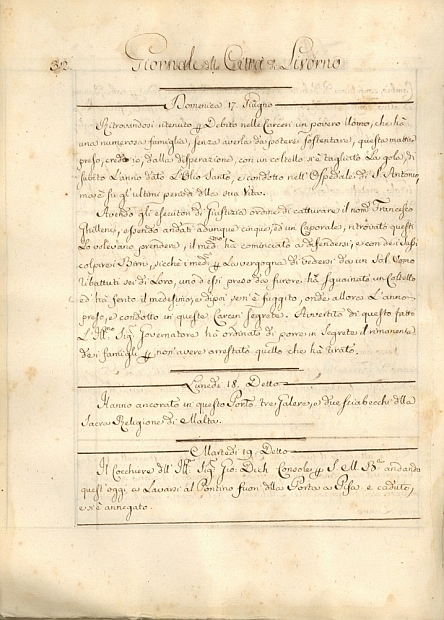 32. Giornale della Città di Livorno
Domenica 17. Giugno
Ritrovandosi ritenuto p Debito nelle Carceri un povero Uomo, che hà
una numerosa famiglia, senza averla da potere sostentare, questa mattina
preso, cred'io, dalla disperazione, con un coltello s'è tagliato la gola, di
subito l'anno dato l'Olio Santo, e condotto nell'Ospedale di S. Antonio,
ma è su gl'ultimi periodi della sua Vita.
Avendo gli esecutori di Giustizia ordine di catturare il nom.º Francesco
essendo andati adunque cinque, ed un Caporale, ritrovato questi
Lo volevano prendere, il med.mo hà cominciato a difendersi, e con de i Sassi
colpire i Birri, sicchè i med.i p La vergogna di vedersi da un Sol Uomo
ributtati sei di Loro, uno d'essi preso da furore hà sguainato un Coltello
ed hà ferito il medesimo, e dipoi se n'è fuggito, onde allora L'anno
preso, e condotto in queste Carceri segrete. Avvertito di questo fatto
L'Ill.mo Sig.r Governatore hà ordinato di porre in Segrete il rimanente
de i famigli p non avere arrestato quello che hà tirato.
Lunedì 18. Detto
Hanno ancorato in questo Porto tre galere, e due sciabecchi della
Sacra Religione di Malta.
Martedì 19. Detto
Il Cocchiere dell' Ill.mo Sig.r Gio: Dich Console p S. M. B.ca andando
quest'oggi a Lavarsi al Pontino fuori della Porta a Pisa è caduto,
e s'è annegato.